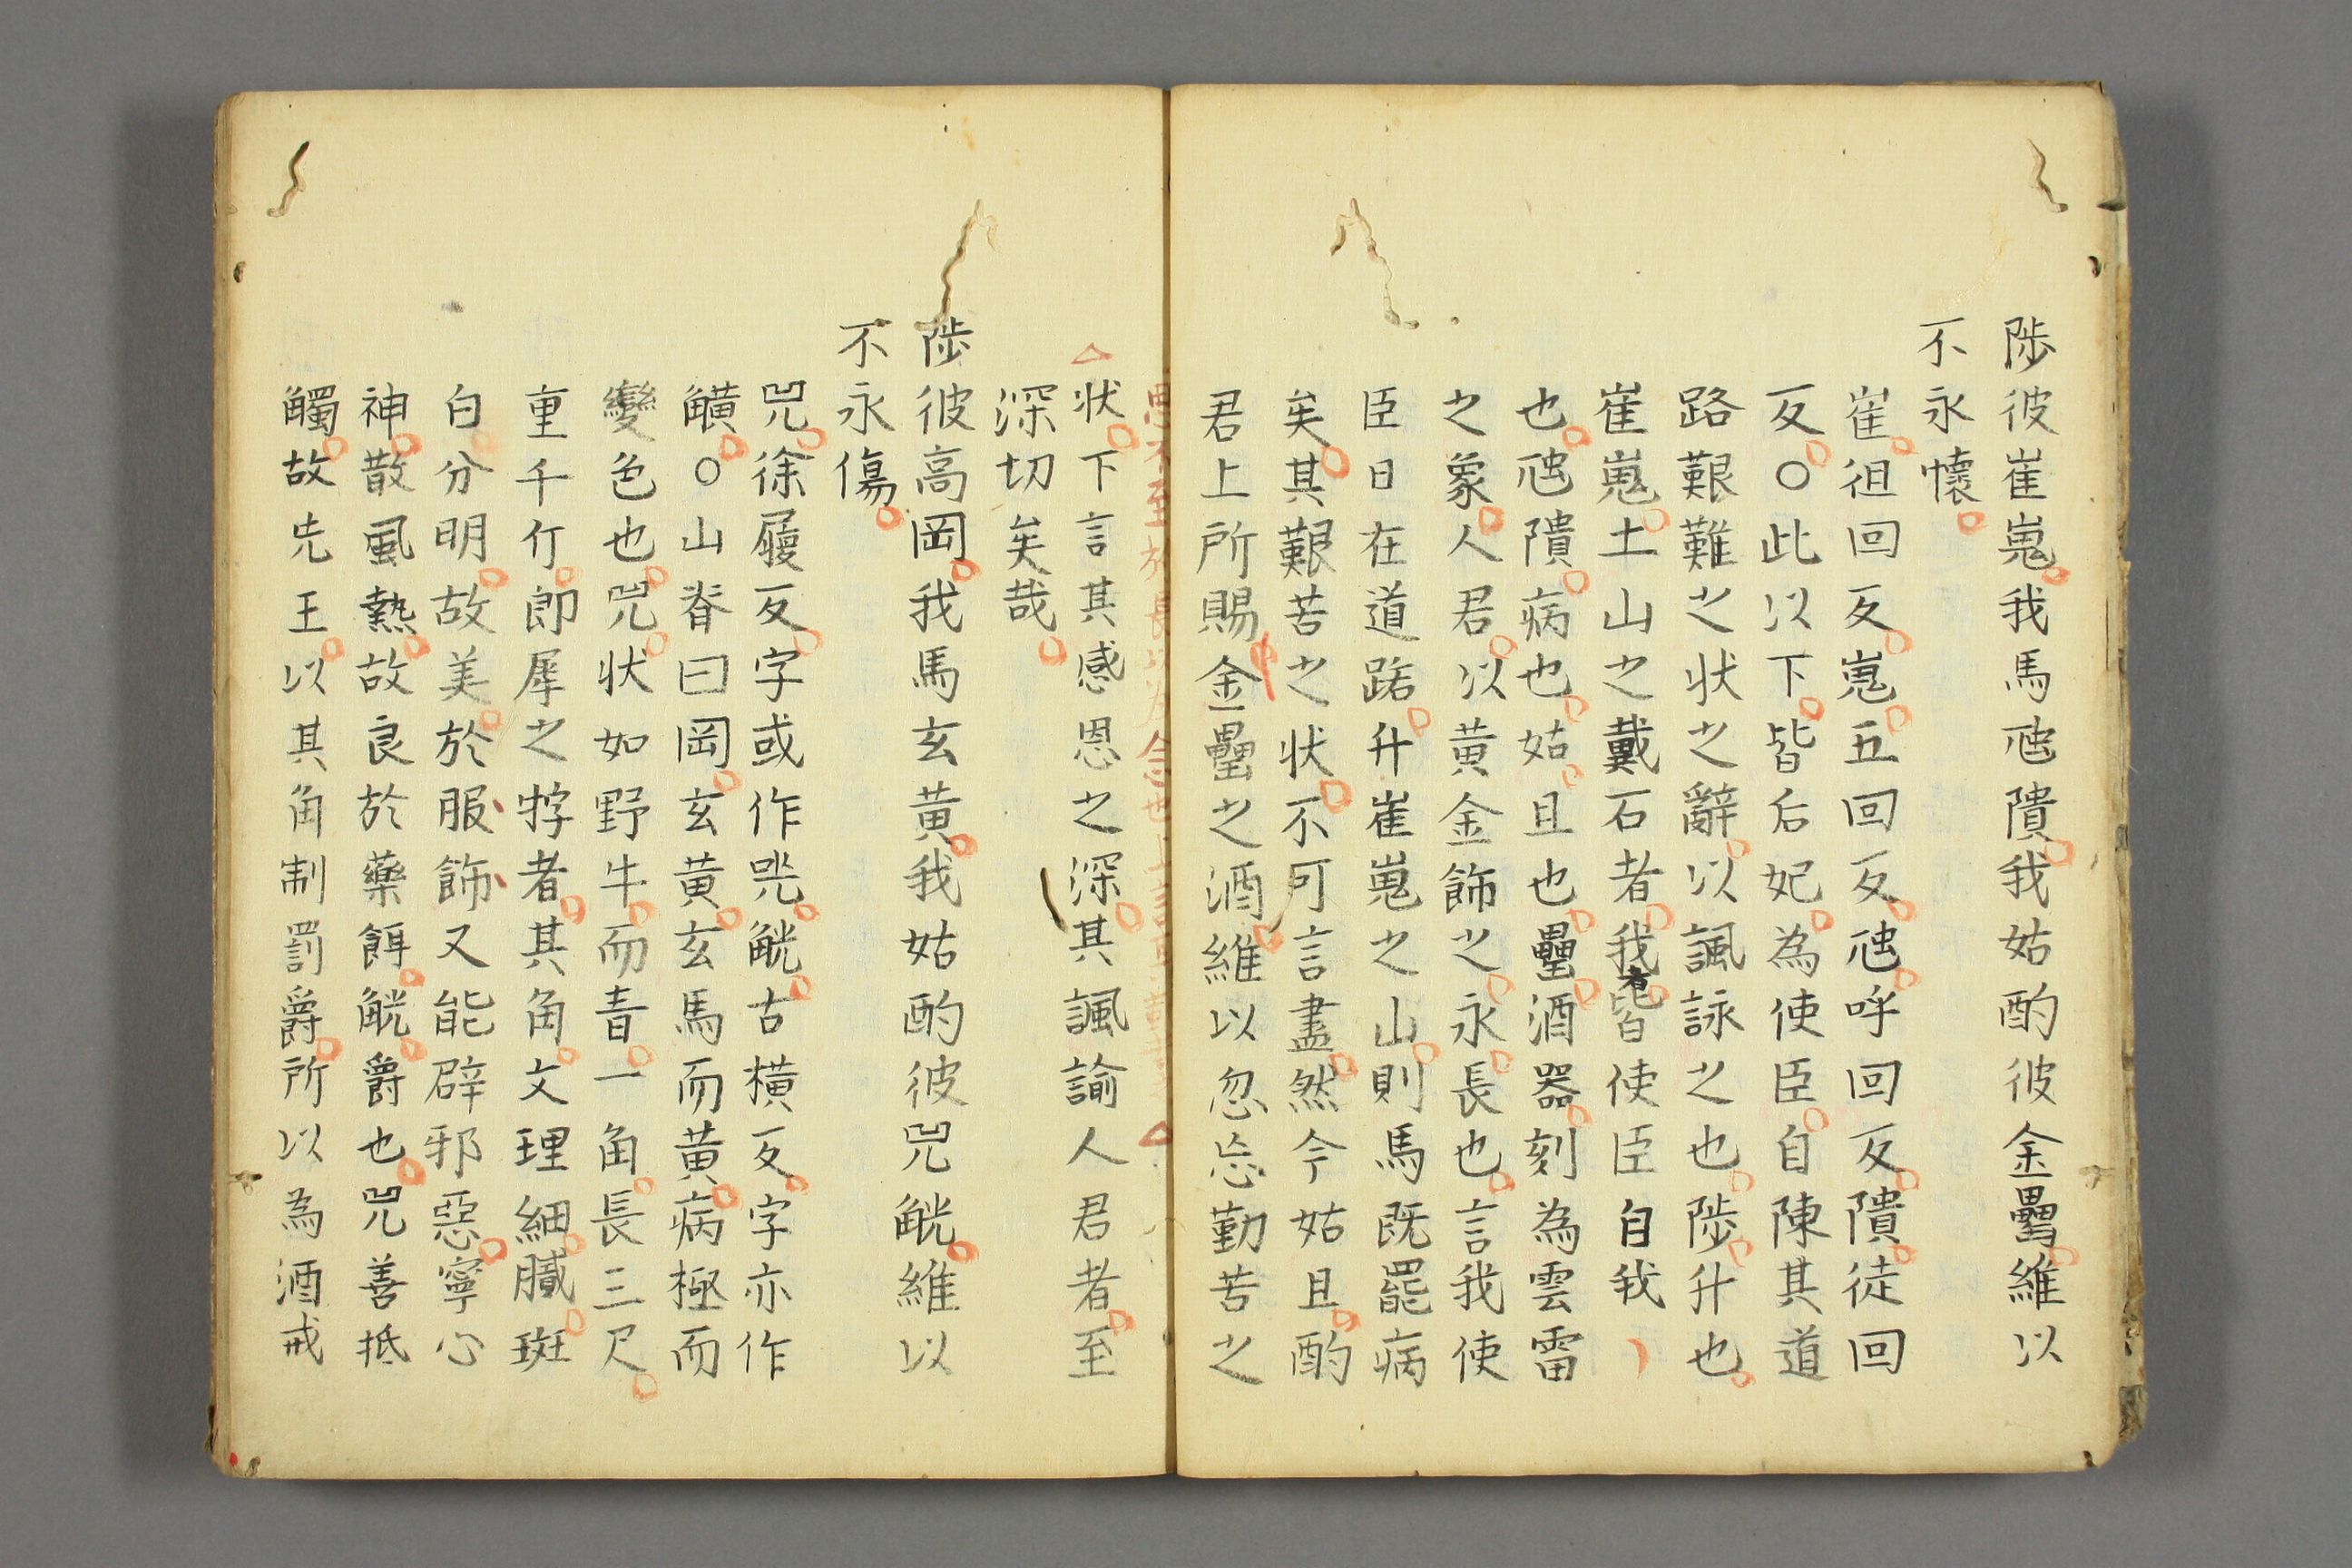 陟彼崔嵬我馬虺隤我姑酌彼金罍維以
不永懷
崔徂回反嵬五回反虺呼回反隤徒回
反○此以下皆后妃為使臣自陳其道
路艱難之状之辭以諷詠之也陟升也
崔嵬土山之戴石者我皆使臣自我
也虺隤病也姑且也罍酒器刻為雲雷
之象人君以黄金飾之永長也言我使
臣日在道路升崔嵬之山則馬既罷病
矣其艱苦之状不可言盡然今姑且酌
君上所賜金罍之酒維以忽忘勤苦之
状下言其感恩之深其諷諭人君者至
深切矣哉
陟彼高岡我馬玄黄我姑酌彼兕觥維以
不永傷
兕徐履反字或作㫯觥古横反字亦作
觵○山脊曰岡玄黄玄馬而黄病極而
變色也兕状如野牛而青一角長三尺
重千斤即犀之牸者其角文理細膩斑
白分明故美於服飾又能辟邪惡寧心
神散風熱故良於藥餌觥爵也兕善抵
觸故先王以其角制罰爵所以為酒戒